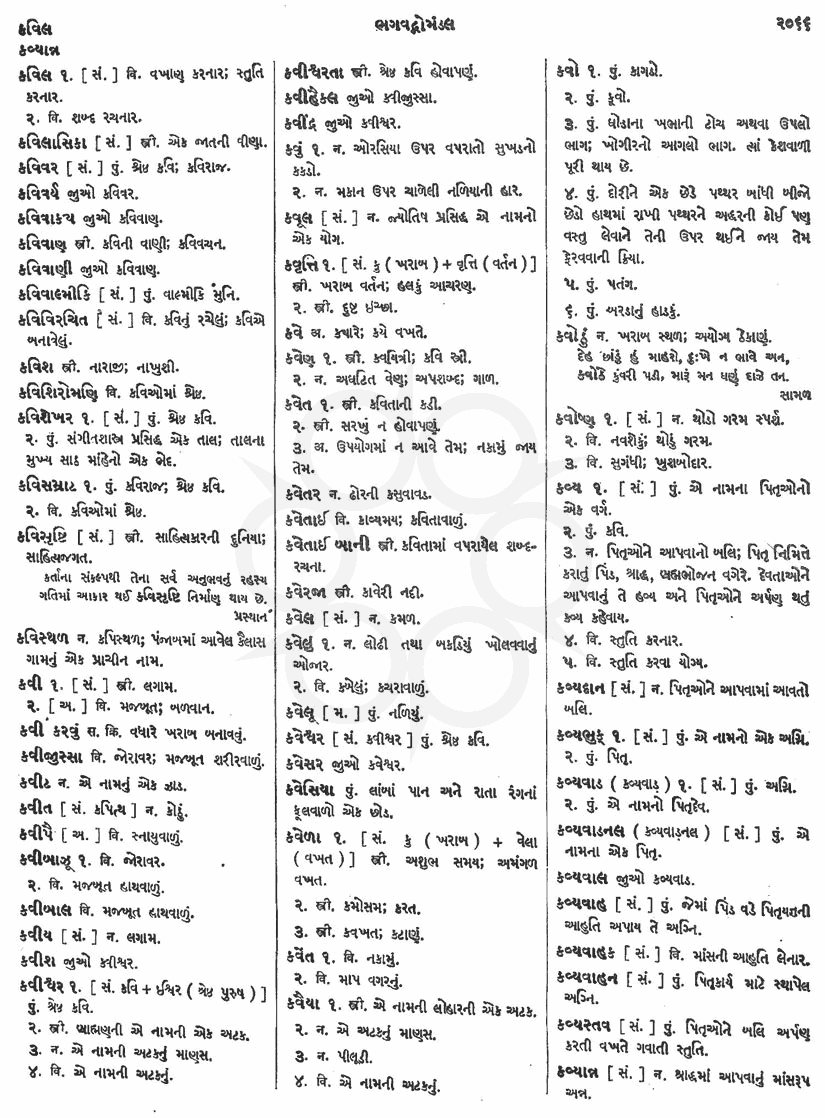 કવિલ
કવ્યાન્ન
ભગવદ્ગોમંડલ
૨૦૬૬
કવિલ ૧. [ સં. ] વિ. વખાણ કરનાર; સ્તુતિ
કરનાર.
૨. વિ. શબ્દ રચનાર.
કવિલાસિકા [ સં. ] સ્ત્રી. એક જાતની વીણા.
કવિવર [ સં. ] પું. શ્રેષ્ઠ કવિ; કવિરાજ.
કવિવર્ય જુઓ કવિવર.
કવિવાકય જુઓ કવિવાણ.
કવિવાણ સ્ત્રી. કવિની વાણી; કવિવચન.
કવિવાણી જુઓ કવિવાણ.
કવિવાલ્મીકિ [ સં. ] પું. વાલ્મીકિ મુનિ.
કવિવિરચિત [ સં. ] વિ. કવિનું રચેલું; કવિએ
બનાવેલું.
કવિશ સ્ત્રી. નારાજી; નાખુશી.
કવિશિરોમણિ વિ. કવિઓમાં શ્રેષ્ઠ.
કવિશેખર ૧. [ સં. ] પું. શ્રેષ્ઠ કવિ.
૨. પું. સંગીતશાસ્ત્ર પ્રસિદ્ધ એક તાલ; તાલના
મુખ્ય સાઠ માંહેનો એક ભેદ.
કવિસમ્રાટ ૧. પું. કવિરાજ; શ્રેષ્ઠ કવિ.
૨. વિ. કવિઓમાં શ્રેષ્ઠ.
કવિસૃષ્ટિ [ સં. ] સ્ત્રી. સાહિત્યકારની દુનિયા;
સાહિત્યજગત.
કર્તાના સંકલ્પથી તેના સર્વ અનુભવનું રહસ્ય
ગતિમાં આકાર થઈ કવિસૃષ્ટિ નિર્માણ થાય છે.
પ્રસ્થાન
કવિસ્થળ ન. કપિસ્થળ; પંજાબમાં આવેલ કૈલાસ
ગામનું એક પ્રાચીન નામ.
કવી ૧. [ સં. ] સ્ત્રી. લગામ.
૨. [ અ. ] વિ. મજબૂત; બળવાન.
કવી કરવું સ. ક્રિ. વધારે ખરાબ બનાવવું.
કવીજુસ્સા વિ. જોરાવર; મજબૂત શરીરવાળું.
કવીટ ન. એ નામનું એક ઝાડ.
કવીત [ સં. કપિત્થ ] ન. કોઠું.
કવીપૈ [ અ. ] વિ. સ્નાયુવાળું.
કવીબાઝૂ ૧. વિ. જોરાવર.
૨. વિ. મજબૂત હાથવાળું.
કવીબાલ વિ. મજબૂત હાથવાળું.
કવીય [ સં. ] ન. લગામ.
કવીશ જુઓ કવીશ્વર.
કવીશ્વર ૧. [ સં. કવિ + ઈશ્વર ( શ્રેષ્ઠ પુરુષ ) ]
પું. શ્રેષ્ઠ કવિ.
૨. સ્ત્રી. બ્રાહ્મણની એ નામની એક અટક.
૩. ન. એ નામની અટકનું માણસ.
૪. વિ. એ નામની અટકનું.
કવીશ્વરતા સ્ત્રી. શ્રેષ્ઠ કવિ હોવાપણું.
કવીહૈક્લ જુઓ કવીજુસ્સા.
કવીંદ્ર જુઓ કવીશ્વર.
કવું ૧. ન. ઓરસિયા ઉપર વપરાતો સુખડનો
કકડો.
૨. ન. મકાન ઉપર ચાળેલી નળિયાની હાર.
કવૂલ [ સં. ] ન. જ્યોતિષ પ્રસિદ્ધ એ નામનો
એક યોગ.
કવૃત્તિ ૧. [ સં. કુ ( ખરાબ ) + વૃત્તિ ( વર્તન ) ]
સ્ત્રી. ખરાબ વર્તન; હલકું આચરણ.
૨. સ્ત્રી. દુષ્ટ ઇચ્છા.
કવે અ. ક્યારે; કયે વખતે.
કવેણ ૧. સ્ત્રી. કવયિત્રી; કવિ સ્ત્રી.
૨. ન. અઘટિત વેણ; અપશબ્દ; ગાળ.
કવેત ૧. સ્ત્રી. કવિતાની કડી.
૨. સ્ત્રી. સરખું ન હોવાપણું.
૩. અ. ઉપયોગમાં ન આવે તેમ; નકામું જાય
તેમ.
કવેતર ન. ઢોરની કસુવાવડ.
કવેતાઈ વિ. કાવ્યમય; કવિતાવાળું.
કવેતાઈ બાની સ્ત્રી. કવિતામાં વપરાયેલ શબ્દ-
રચના.
કવેરજા સ્ત્રી. કાવેરી નદી.
કવેલ [ સં. ] ન. કમળ.
કવેલું ૧. ન. લોઢી તથા બકડિયું ખોલવવાનું
ઓજાર.
૨. વિ. કખેલું; કચરાવાળું.
કવેલૂ [ મ. ] પું. નળિયું.
કવેશ્વર [ સં. કવીશ્વર ] પું. શ્રેષ્ઠ કવિ.
કવેસર જુઓ કવેશ્વર.
કવેસિયા પું. લાંબાં પાન અને રાતા રંગનાં
ફૂલવાળો એક છોડ.
કવેળા ૧. [ સં. કુ ( ખરાબ ) + વેલા
( વખત ) ] સ્ત્રી. અશુભ સમય; અમંગળ
વખત.
૨. સ્ત્રી. કમોસમ; કરત.
૩. સ્ત્રી. કવખત; કટાણું.
કવેંત ૧. વિ. નકામું.
૨. વિ. માપ વગરનું.
કવૈયા ૧. સ્ત્રી. એ નામની લોહારની એક અટક.
૨. ન. એ અટકનું માણસ.
૩. ન. પીલૂડી.
૪. વિ. એ નામની અટકનું.
કવો ૧. પું. કાગડો.
૨. પું. કૂવો.
૩. પું. ઘોડાના ખભાની ટોચ અથવા ઉપલો
ભાગ; ખોગીરનો આગલો ભાગ. ત્યાં કેશવાળી
પૂરી થાય છે.
૪. પું. દોરીને એક છેડે પથ્થર બાંધી બીજો
છેડો હાથમાં રાખી પથ્થરને અદ્ધરની કોઈ પણ
વસ્તુ લેવાને તેની ઉપર થઈને જાય તેમ
ફેરવવાની ક્રિયા.
૫. પું. પતંગ.
૬. પું. બરડાનું હાડકું.
કવોઠું ન. ખરાબ સ્થળ; અયોગ્ય ઠેકાણું.
દેહ છાંડું હું માહરો, દુઃખે ન ભાવે અન,
કવોઠે કુંવરી પડી, મારૂં મન ઘણું દાઝે તન.
સામળ
કવોષ્ણ ૧. [ સં. ] ન. થોડો ગરમ સ્પર્શ.
૨. વિ. નવશેકું; થોડું ગરમ.
૩. વિ. સુગંધી; ખુશબોદાર.
કવ્ય ૧. [ સં. ] પું. એ નામના પિતૃઓનો
એક વર્ગ.
૨. પું. કવિ.
૩. ન. પિતૃઓને આપવાનો બલિ; પિતૃ નિમિત્તે
કરાતું પિંડ, શ્રાદ્ધ, બ્રહ્મભોજન વગેરે. દેવતાઓને
આપવાનું તે હવ્ય અને પિતૃઓને અર્પણ થતું
કવ્ય કહેવાય.
૪. વિ. સ્તુતિ કરનાર.
૫. વિ. સ્તુતિ કરવા યોગ્ય.
કવ્યદાન [ સં. ] ન. પિતૃઓને આપવામાં આવતો
બલિ.
કવ્યભુક્ ૧. [ સં. ] પું. એ નામનો એક અગ્નિ.
૨. પું. પિતૃ.
કવ્યવાડ ( કવ્યવાડ્ ) ૧. [ સં. ] પું. અગ્નિ.
૨. પું. એ નામનો પિતૃદેવ.
કવ્યવાડનલ ( કવ્યવાડ્નલ ) [ સં. ] પું. એ
નામના એક પિતૃ.
કવ્યવાલ જુઓ કવ્યવાડ.
કવ્યવાહ [ સં. ] પું. જેમાં પિંડ વડે પિતૃયજ્ઞની
આહુતિ અપાય તે અગ્નિ.
કવ્યવાહક [ સં. ] વિ. માંસની આહુતિ લેનાર.
કવ્યવાહન [ સં. ] પું. પિતૃકાર્ય માટે સ્થાપેલ
અગ્નિ.
કવ્યસ્તવ [ સં. ] પું. પિતૃઓને બલિ અર્પણ
કરતી વખતે ગવાતી સ્તુતિ.
કવ્યાન્ન [ સં. ] ન. શ્રાદ્ધમાં આપવાનું માંસરૂપ
અન્ન.